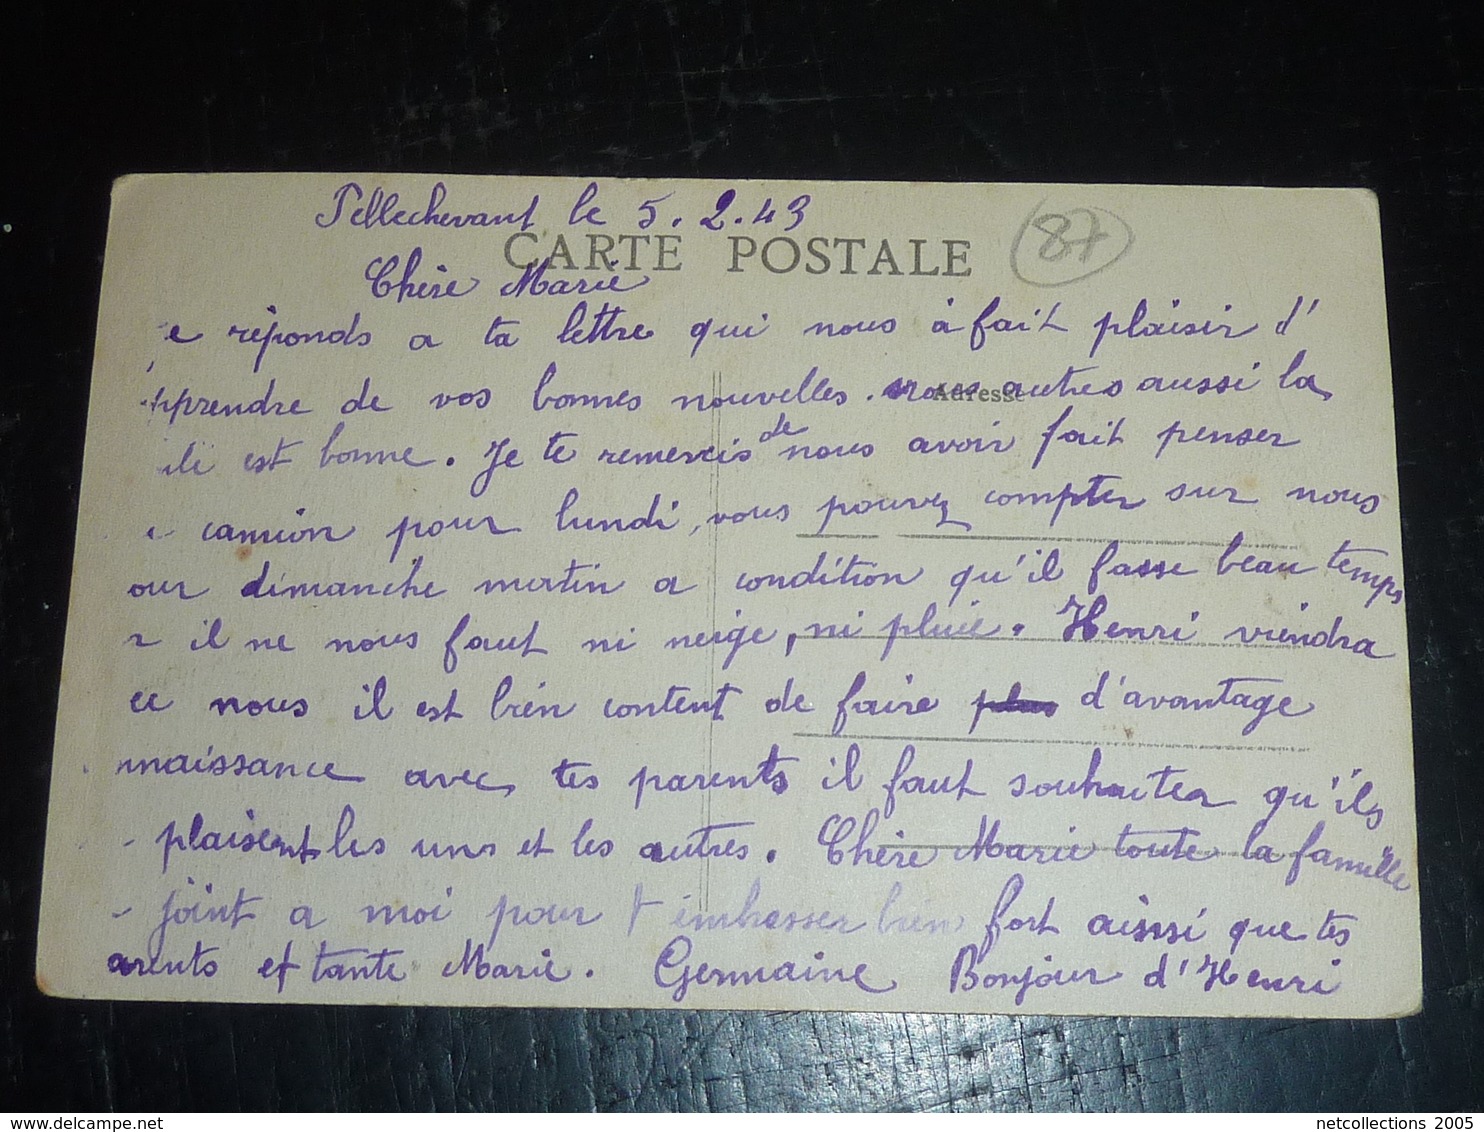 Pellechevant le 5.2.43
CARTE POSTALE
87
Chère Marie
e réponds a ta lettre qui nous à fait plaisir d'
pprendre de vos bonnes nouvelles. nous autres aussi la
Adresse
est bonne. Je te remercis de nous avoir fait penser
camion pour lundi, vous pouvez compter sur nous
our dimanche matin a condition qu'il fasse beau temps
il ne nous faut ni neige, ni pluie. Henri viendra
ec nous il est bien content de faire plus d'avantage
nnaissance avec tes parents il faut souhaiter qu'ils
plaisent les uns et les autres. Chère Marie toute la famille
joint a moi pour t'embrasser bien fort aissi que tes
arents et tante Marie. Germaine Bonjour d'Henri
netcollections 2005